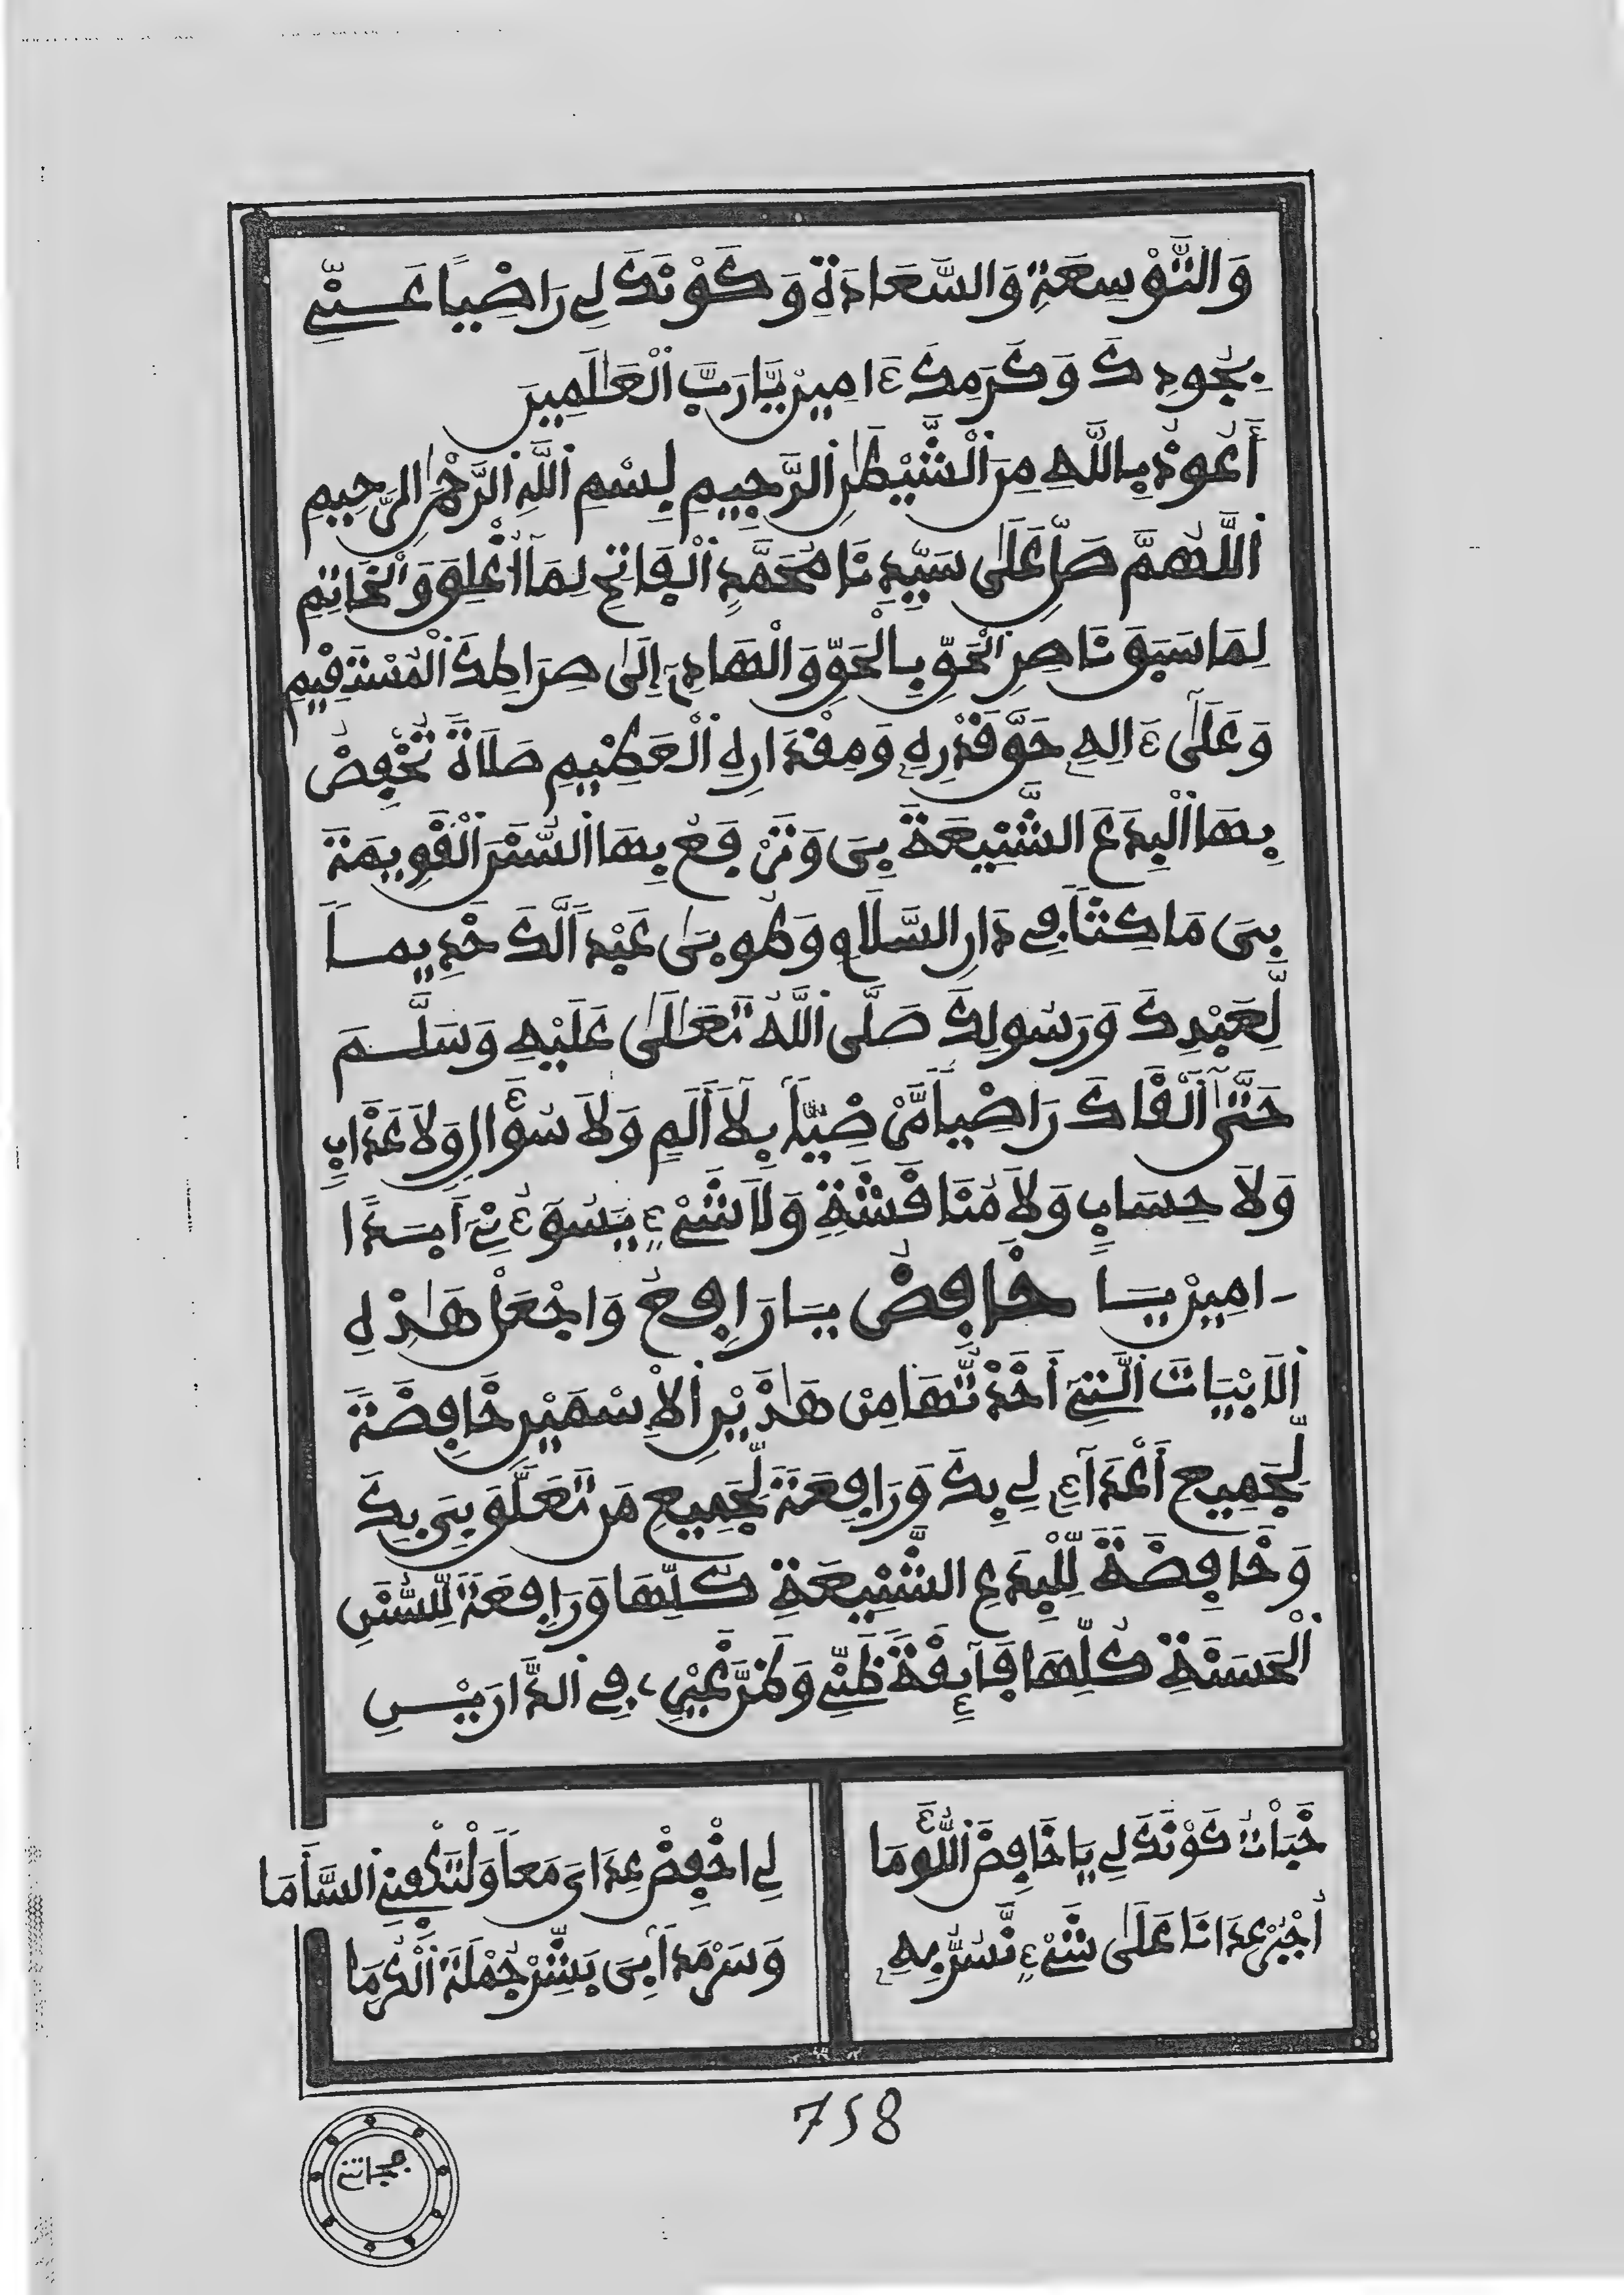 وَالتَّوْسِعَةِ وَالسَّعَادَةِ وَكَوْنَكَ لِي رَاضِيًا عَنِّي
بِجُودِكَ وَكَرَمِكَ ءَامِين يَارَبَّ الْعَالَمِينَ
أَعُوذُ بِاللَّهِ مِنَ الشَّيْطَٰنِ الرَّجِيمِ بِسْمِ اللَّهِ الرَّحْمَٰنِ الرَّحِيمِ
اللَّهُمَّ صَلِّ عَلَى سَيِّدِنَا مُحَمَّدٍ الْفَاتِحِ لِمَا أُغْلِقَ وَالْخَاتِمِ
لِمَا سَبَقَ نَاصِرِ الْحَقِّ بِالْحَقِّ وَالْهَادِي إِلَى صِرَاطِكَ الْمُسْتَقِيمِ
وَعَلَى ءَالِهِ حَقَّ قَدْرِهِ وَمِقْدَارِهِ الْعَظِيمِ صَلَاةً تَخْفِضُ
بِهَا الْبِدَعَ الشَّنِيعَةَ بِي وَتَرْفَعُ بِهَا السُّنَنَ الْقَوِيمَةَ
بِي مَاكِثًا فِي دَارِ السَّلَامِ وَطُوبَىٰ عَبْدًا لَّكَ خَدِيمًا
لِّعَبْدِكَ وَرَسُولِكَ صَلَّى اللَّهُ تَعَالَى عَلَيْهِ وَسَلَّمَ
حَتَّىٰ أَلْقَاكَ رَاضِيًا مَّرْضِيًّا بِلَا أَلَمٍ وَلَا سُؤَالٍ وَلَا عَذَابٍ
وَلَا حِسَابٍ وَلَا مُنَاقَشَةٍ وَلَا شَيْءٍ يَسُوءُنِي أَبَدًا
ءامِين يَا خَافِضُ يَا رَافِعُ وَاجْعَلْ هَٰذِهِ
الْأَبْيَاتَ الَّتِي أَخَذتُّهَا مِنْ هَٰذَيْنِ الْاِسْمَيْنِ خَافِضَةً
لِّجَمِيعِ أَعْدَآءٍ لِي بِكَ وَرَافِعَةً لِّجَمِيعِ مَن تَعَلَّقَ بِي بِكَ
وَخَافِضَةً لِّلْبِدَعِ الشَّنِيعَةِ كُلِّهَا وَرَافِعَةً لِّلسُّنَنِ
الْحَسَنَةِ كُلِّهَا فَآئِقَةً ظَنِّي وَظَنَّ غَيْرِي فِي الدَّارَيْنِ
خَبَأْتُ كَوْنَكَ لِي يَا خَافِضَ اللُّؤَمَا
لِي اخْفِضْ عِدَايَ مَعًا وَلْتَكْفِنِي السَّأَمَا
اُجْبُرْ عِدَانَا عَلَى شَيْءٍ نُّسَرُّ بِهِ
وَسَرْمَدًا بِي بَشِّرْ جُمْلَةَ الْكُرَمَا
758